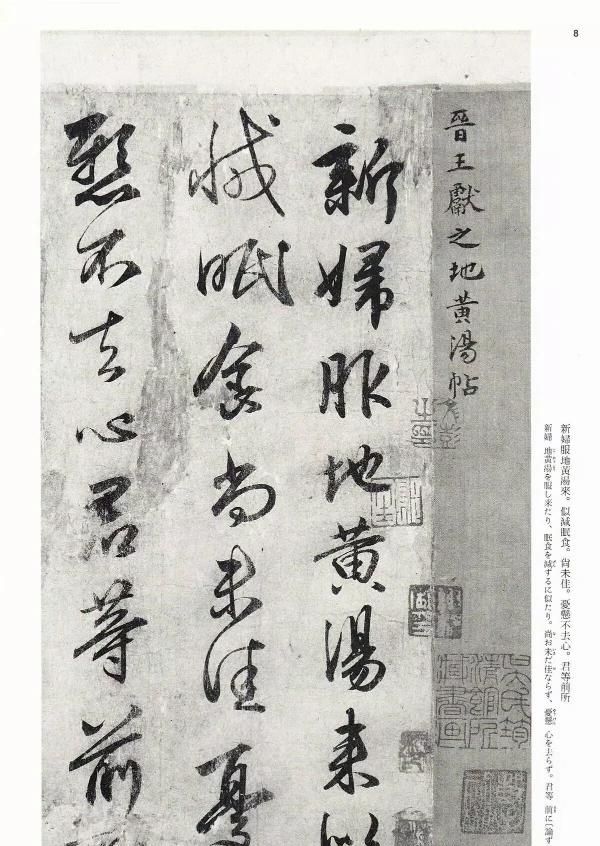 8
晉王獻之地黃湯帖
新婦服地黃湯来似
減眠食尚未佳憂
懸不去心君等前
新婦服地黃湯來。似減眠食。尙未佳。憂懸不去心。君等前所
新婦 地黃湯を服し来たり、眠食を減ずるに似たり。尙お未だ佳ならず、憂懸 心を去らず。君等 前に〔論ず